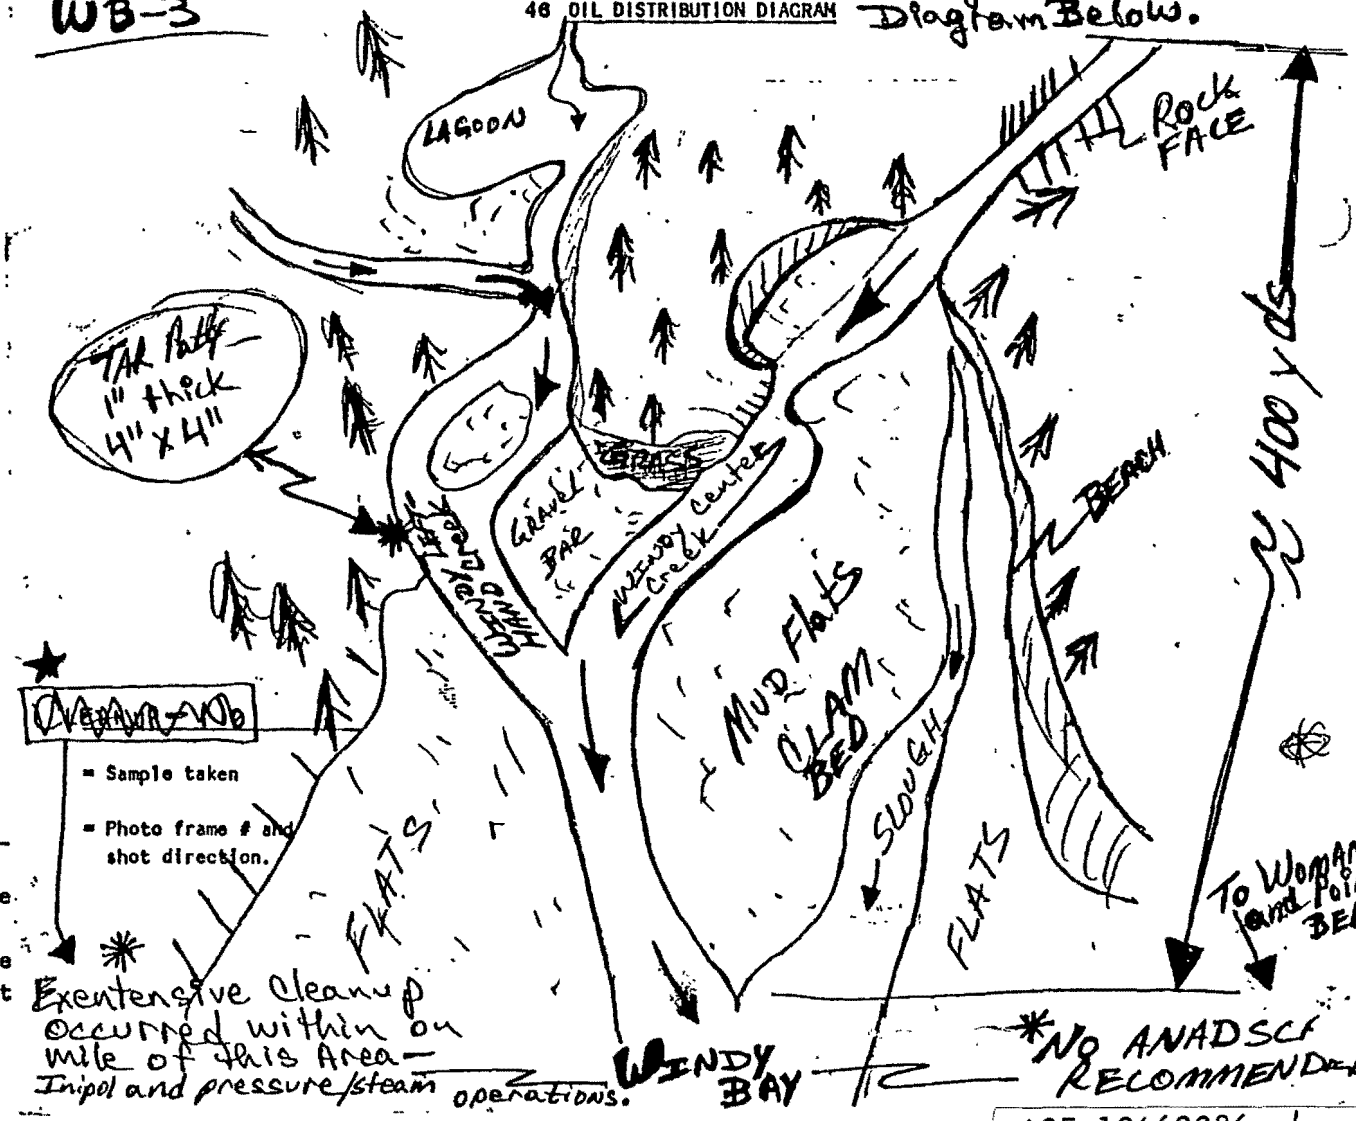 WB-3
46 OIL DISTRIBUTION DIAGRAM
Diagram Below.
LAGOON
ROCK
FACE
TAR Patty-
1" thick
4" X 4"
≈ 400 yds
GRASS
GRAVEL
BAR
WINDY Center
Creek
WINDY LEFT
HAND CREEK
BEACH
MUD Flats
CLAM
BED
SLOUGH
FLATS
FLATS
= Sample taken
= Photo frame # and
shot direction.
To Woman
and Poi
BE
Exentensive Cleanup
occurred within on
mile of this Area-
Inipol and pressure/steam operations.
WINDY
BAY
*No ANADSCF
RECOMMENDE